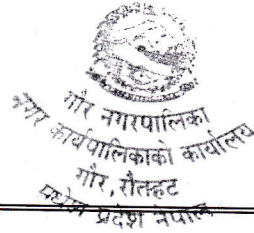 गौर नगरपालिका
नगर कार्यपालिकाको कार्यालय
गौर, रौतहट
मधेश प्रदेश नेपाल